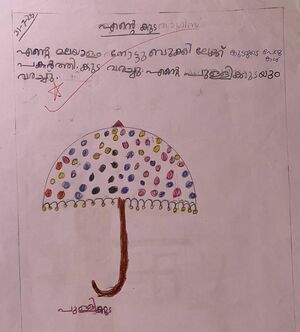 21-7-23
എന്റെ കുട
എന്റെ മലയാളം നോട്ടുബുക്കി ലേക്ക്
പകർത്തി. കുട വരച്ചു. എന്റെ പുള്ളിക്കുടയും
വരച്ചു.
പുള്ളിക്കുട